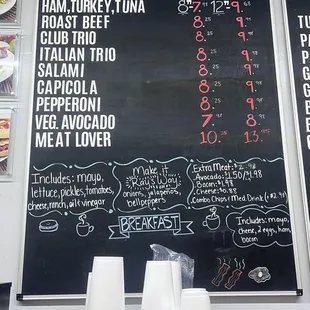 HAM, TURKEY, TUNA 8" 7. 12" 9.
ROAST BEEF 8.25 9.
CLUB TRIO 8.25 9.
ITALIAN TRIO 8.25 9.
SALAMI 8.25 9.
CAPICOLA 8.25 9.
PEPPERONI 8.25 9.
VEG. AVOCADO 7. 8.
MEAT LOVER 10.25 13.95
Includes: mayo,
lettuce, pickles, tomatoes,
cheese, ranch, oil & vinegar
Make it
Ray's Way:
onions, jalapeños,
bellpeppers
Extra Meat: $2.98
Avocado: 1.50/$1.98
Bacon: $1.98
Cheese: $0.88
Combo Chips & Med. Drink
BREAKFAST
Includes: mayo,
cheese, 2 eggs, ham,
bacon